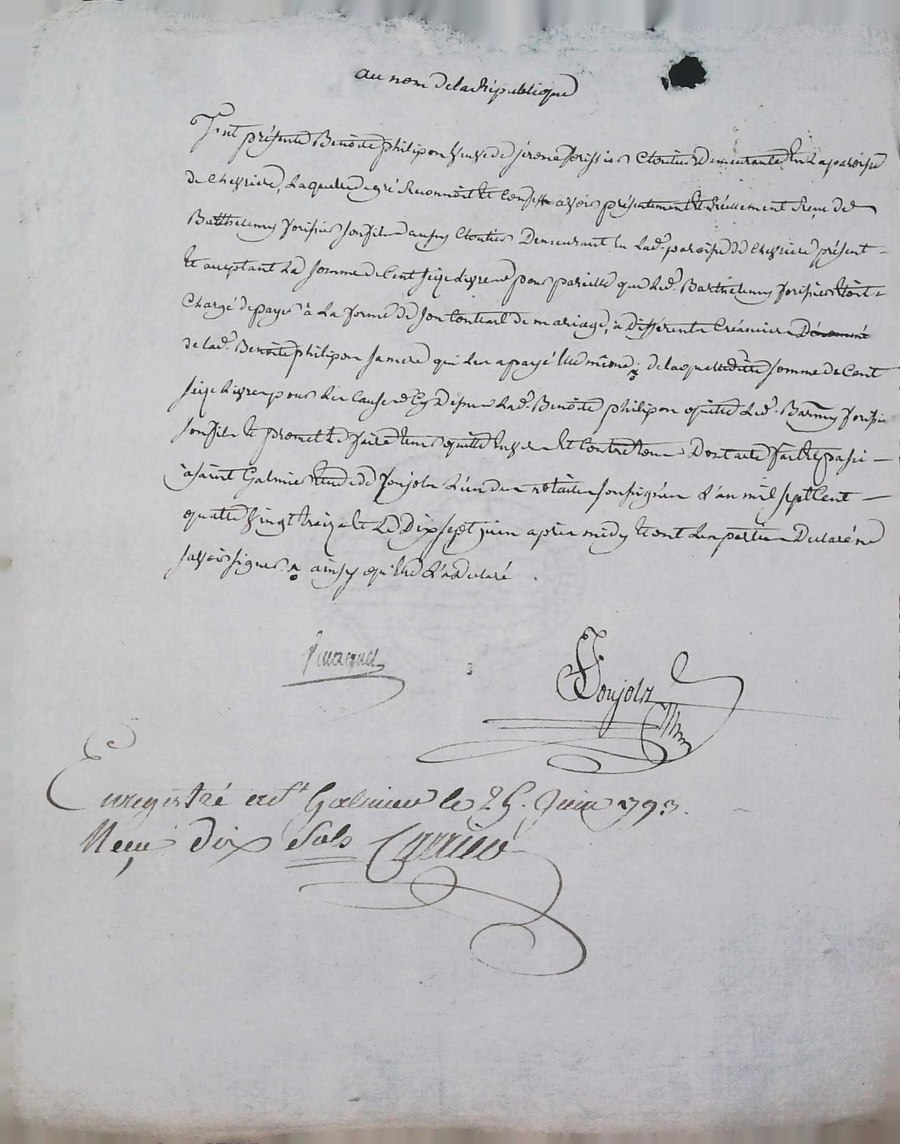 au nom de la République
Fut présente Benoite philipon veuve de jérome forissier Cloutier demeurante en la paroisse
de Chevriere, Laquelle de gré Reconnoit et Confesse avoir présentement et réellement Reçu de
Barthelemy forissier son fils aussy Cloutier Demeurant en Lad. paroisse de Chevriere présent
et aceptant La somme de Cent seize Livres pour pareille que Led. Barthelemy forissier étoit
Chargé de payer à La forme de son Contrat de mariage, à differents Créanciers Dénommé
de Lad. Benoite philipon sa mere qui Les a payé Lui même, de Laquelle ditte somme de Cent
seize Livres pour Les Causes Cy Dessus Lad. Benoite philipon quitte Led. Barmy forissier
son fils et promet Le faire tenir quitte Envers et Contre tous Dont acte fait et passé
à saint Galmier Etude de Poujols L'un des notaires soussignés L'an mil sept Cent
quatre vingt treize et Le Dix sept juin après midy et ont Les parties Declaré ne
savoir signer, ainsy qu'elles L'ont declaré.
Poujols
Enregistré à St. Galmier le 25. Juin 1793.
Reçu dix sols